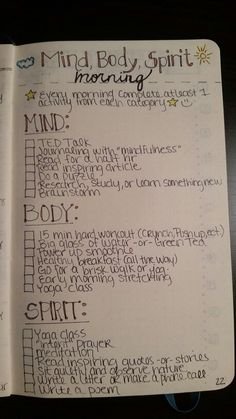 Mind, Body, Spirit
morning
Every morning complete atleast 1
activity from each category
MIND:
TED Talk
Journaling with "mindfulness"
Read for a half hr
Read inspiring article
Do a puzzle
Research, Study, or Learn something new
Brainstorm
BODY:
15 min hard workout (Crunch, Plank, ect)
Big glass of water -or- Green Tea
Power up smoothie
Healthy breakfast (all the way)
GO for a brisk walk or jog
Early morning stretching
Yoga class
SPIRIT:
Yoga class
"intent" prayer
meditation
Read inspiring quotes -or- stories
Sit quietly and observe nature
Write a letter or make a phone call
Write a poem
22